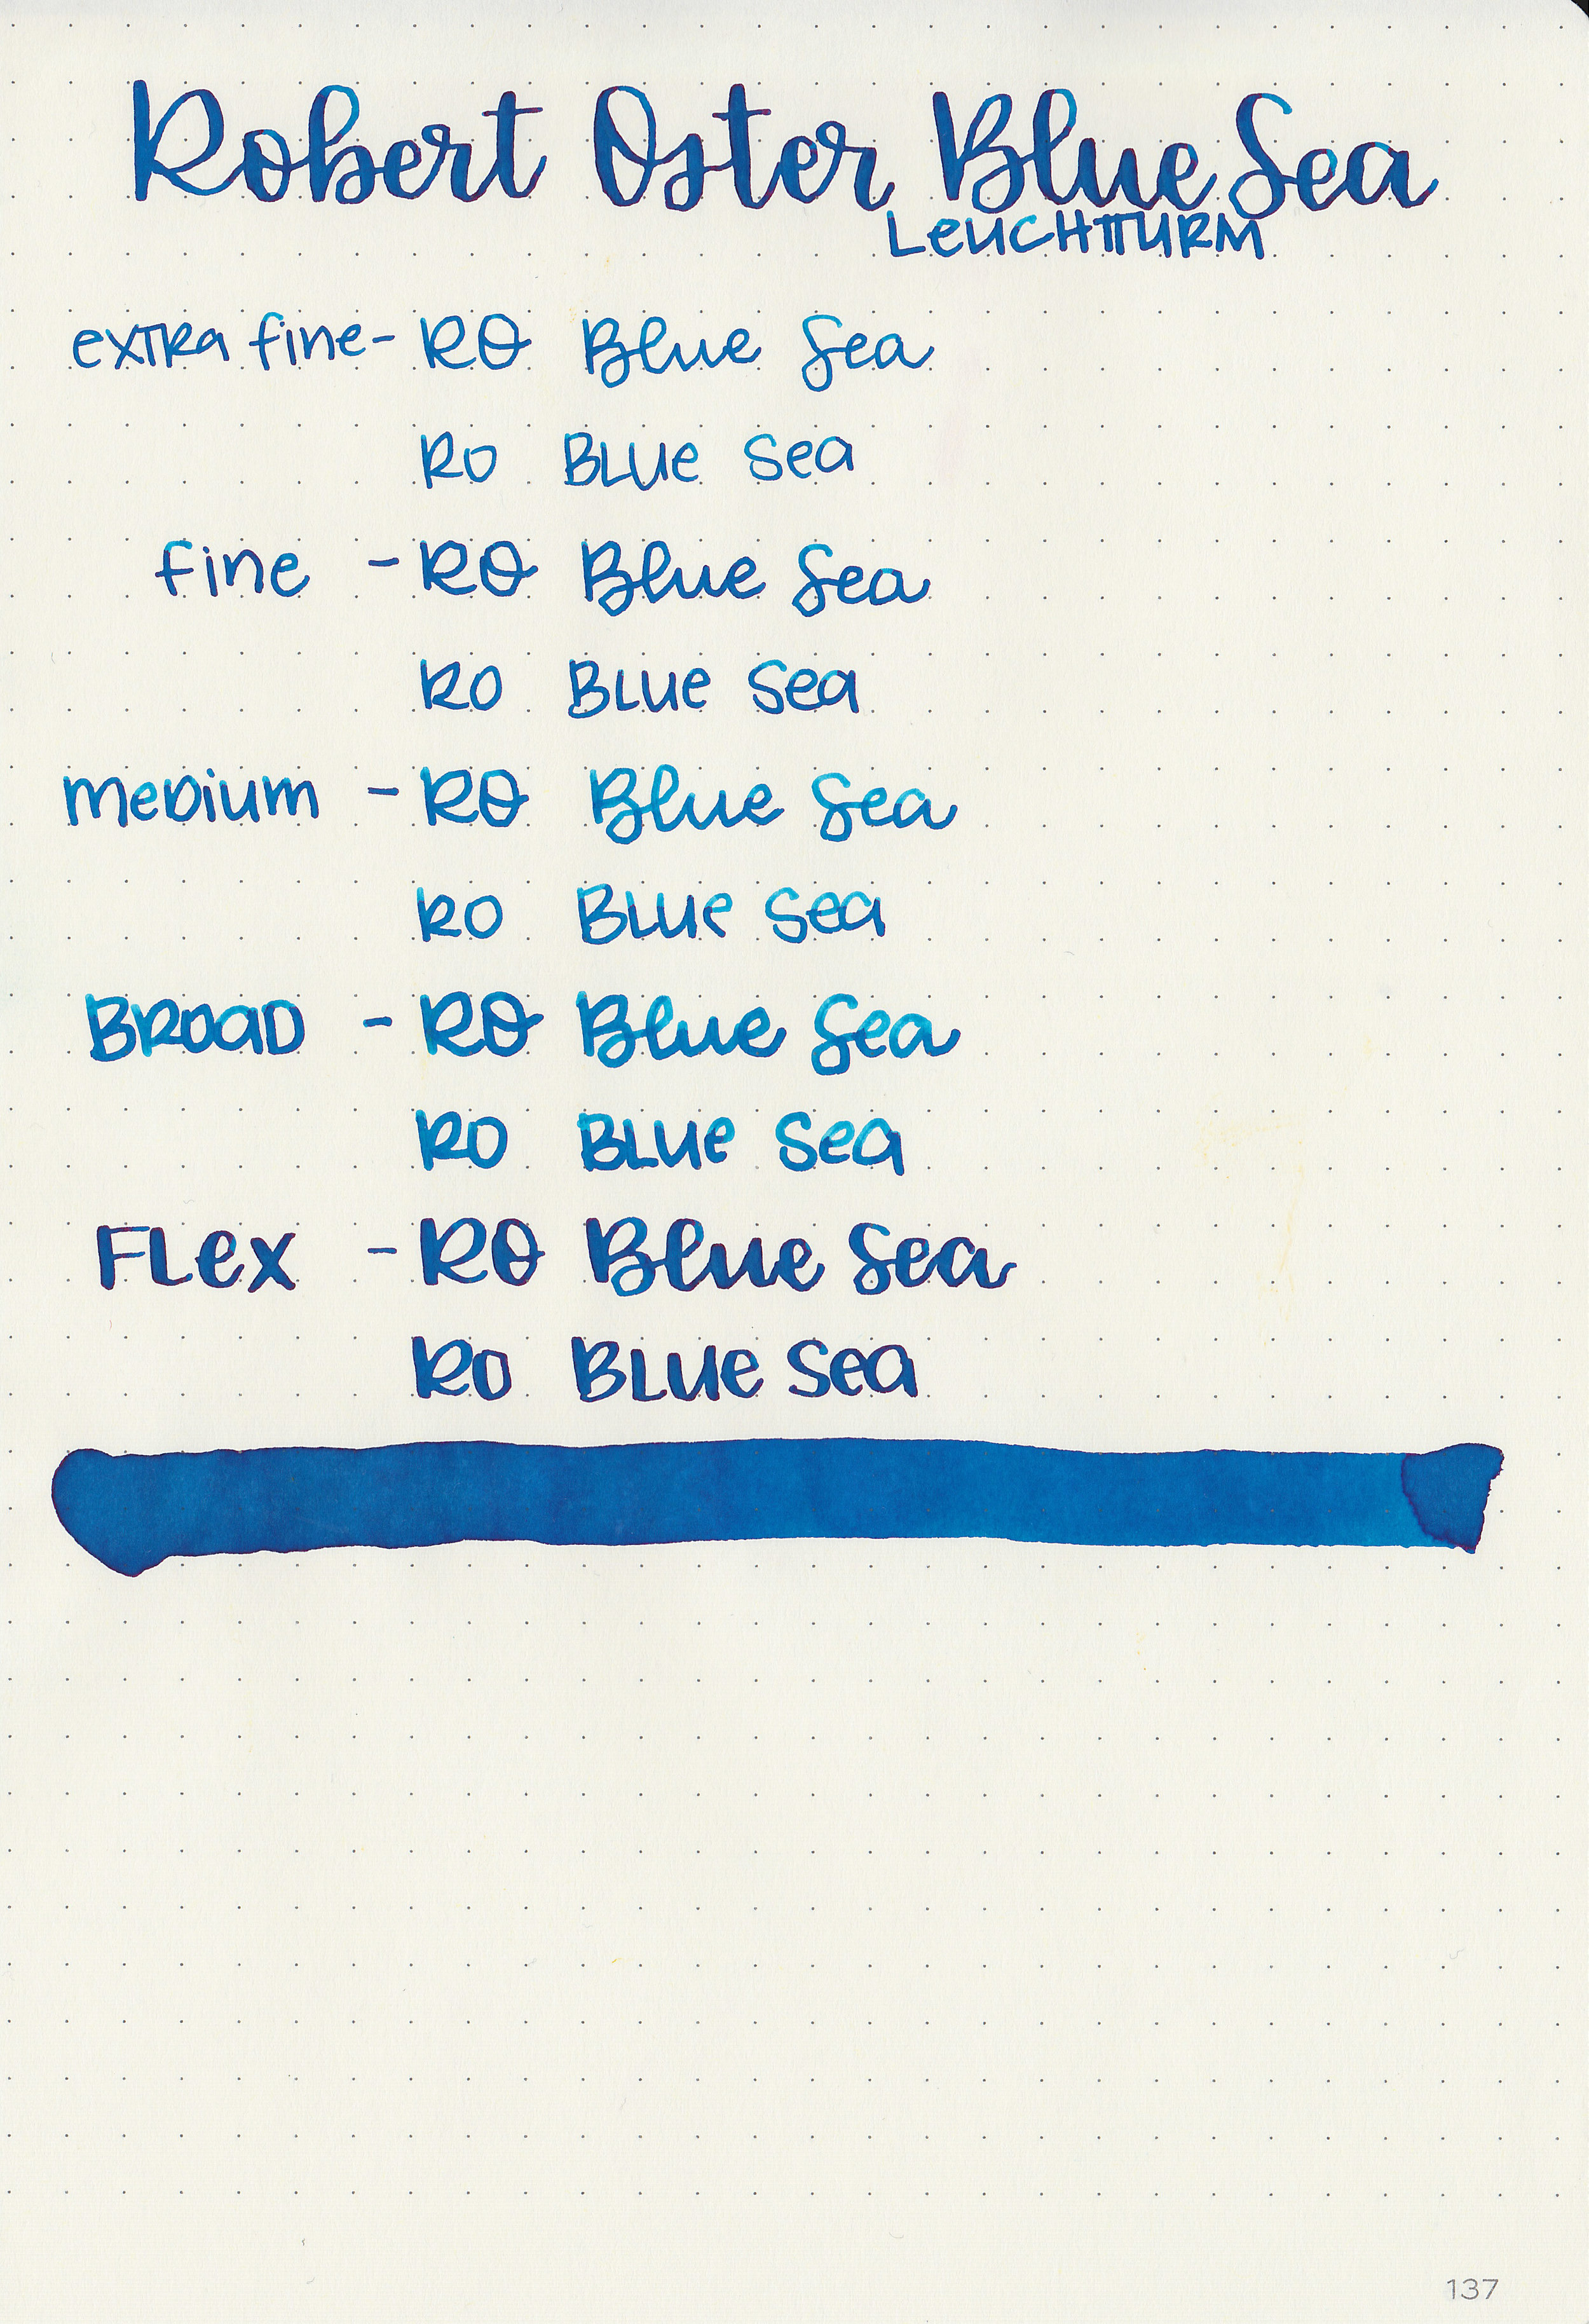 Robert Oster Blue Sea
LeUCHTTURM
exTRa fine- RO Blue Sea
RO BLUe Sea
fine - RO Blue Sea
RO BLUe Sea
meDium - RO Blue Sea
RO BLUe Sea
BROaD - RO Blue Sea
RO BLUe Sea
FLex - RO Blue Sea
RO BLUe Sea
137